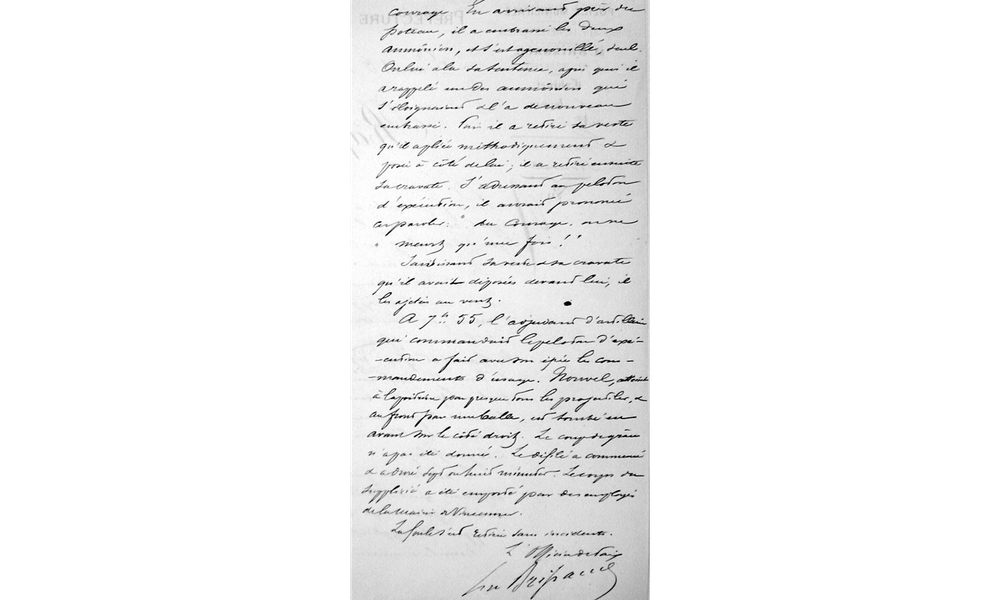 courage. En arrivant près du
poteau, il a embrassé les deux
aumôniers, et s'est agenouillé, seul.
On lui a lu sa sentence, après quoi il
a rappelé un des aumôniers qui
s'éloignaient et l'a de nouveau
embrassé. Puis il a retiré sa veste
qu'il a pliée méthodiquement &
posée à côté de lui ; il a retiré ensuite
sa cravate. S'adressant au peloton
d'exécution, il aurait prononcé
ces paroles : " du courage, on ne
" meurt qu'une fois ! "
Saisissant sa veste & sa cravate
qu'il avait déposées devant lui, il
les a jetées au vent.
A 7h 55, l'adjudant d'artillerie
qui commandait le peloton d'exé-
-cution a fait avec son épée les com-
-mandements d'usage. Nouvel, atteint
à la poitrine par presque tous les projectiles, &
au front par une balle, est tombé en
avant sur le côté droit. Le coup de grâce
n'a pas été donné. Le défilé a commencé
et a duré sept ou huit minutes. Le corps du
supplicié a été emporté par des employés
de la Mairie de Vincennes.
La foule s'est retirée sans incidents.
L'Officier de Paix
PRÉFECTURE